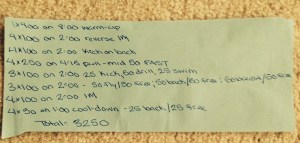 1x400 on 8:00 warm-up
4x100 on 2:00 reverse IM
4x100 on 2:00 kick on back
4x250 on 4:15 pull - mid 50 FAST
3x100 on 2:00 25 kick, 50 drill, 25 swim
3x100 on 2:00 - 50 fly/50 free; 50 back/50 free; 50 breast/50 free
4x100 on 2:00 IM
4x50 on 1:00 cool-down - 25 back/25 free
Total = 3250